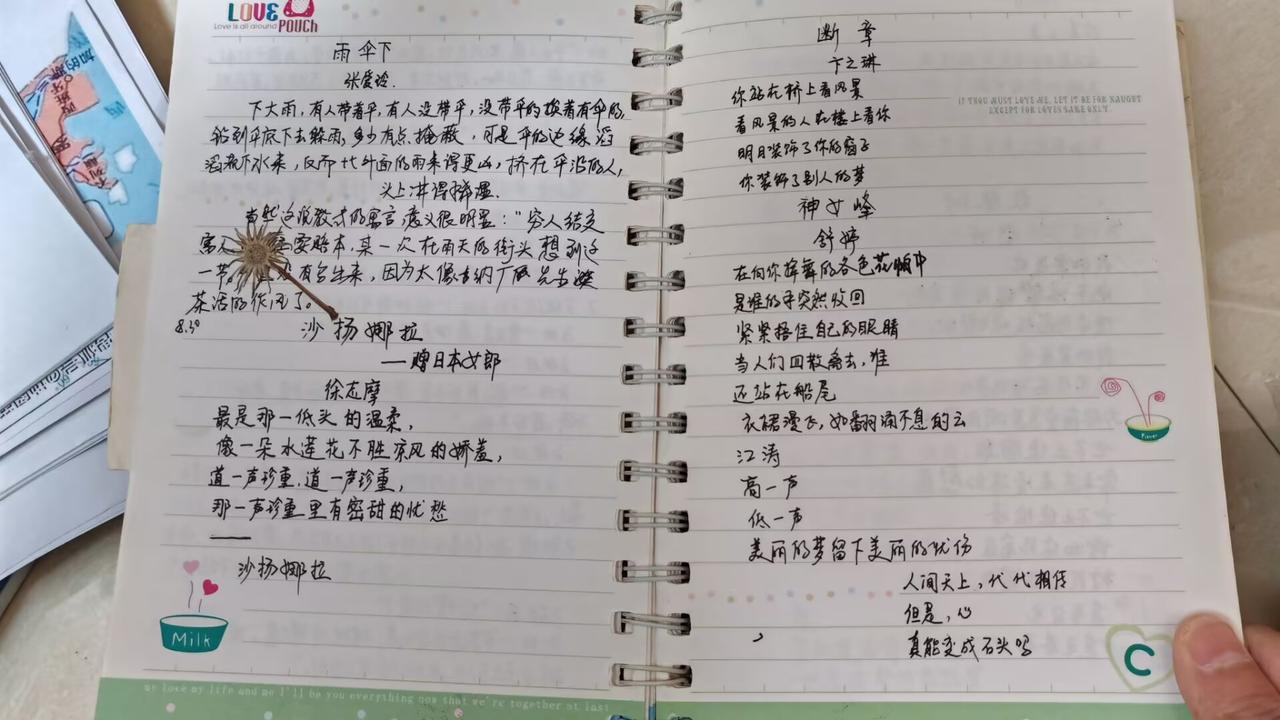 LOVE
Love is all around POUCH
雨伞下
张爱玲.
下大雨,有人带着伞,有人没带伞,没带伞的挨着有伞的,
钻到伞底下去躲雨,多少有点掩蔽,可是伞的边缘滔
滔流下水来,反而比外面的雨来得更凶,挤在伞沿的人,
头上淋得稀湿.
当然这说教式的寓言意义很明显:"穷人结交
富人 要赔本,某一次在雨天的街头想到这
一节, 有写出来,因为太像 先生
茶话的作风了。
8.30
沙扬娜拉
——赠日本女郎
徐志摩
最是那一低头的温柔,
像一朵水莲花不胜凉风的娇羞,
道一声珍重,道一声珍重,
那一声珍重里有密甜的忧愁
——
沙扬娜拉
Milk
my love my life and me I'll be you everything now that we're together at last
断章
卞之琳
你站在桥上看风景
看风景的人在楼上看你
IF THOU MUST LOVE ME, LET IT BE FOR NAUGHT
EXCEPT FOR LOVES SAKE ONLY.
明月装饰了你的窗子
你装饰了别人的梦
神女峰
舒婷
在向你挥舞的各色花帕中
是谁的手突然收回
紧紧捂住自己的眼睛
当人们四散离去,谁
还站在船尾
衣裙漫飞,如翻涌不息的云
江涛
高一声
低一声
美丽的梦留下美丽的忧伤
人间天上,代代相传
但是,心
真能变成石头吗
C